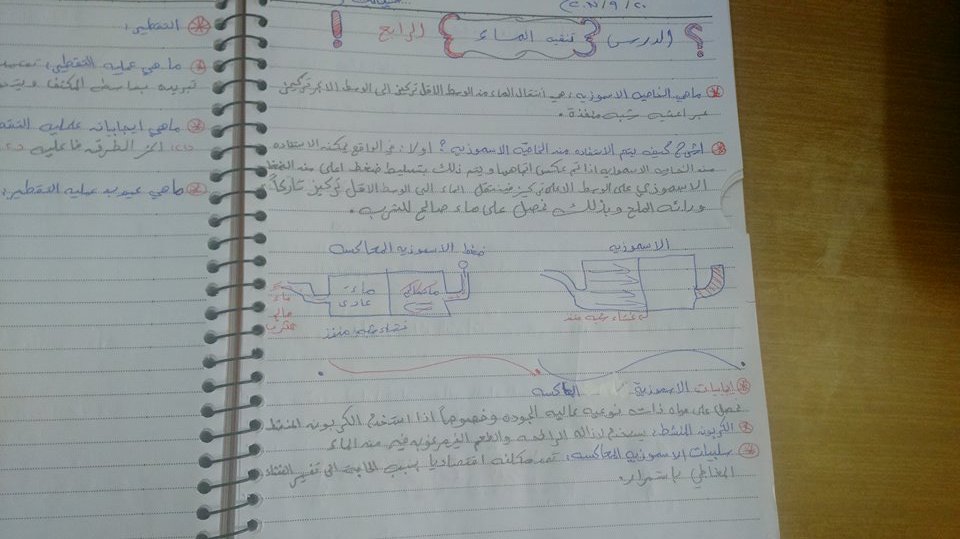 ٢٠١٧/٩/٢٠
الدرس الرابع تنقية الماء
ماهي الخاصيه الاسموزيه: هي انتقال الماء من الوسط الاقل تركيز الى الوسط الاكثر تركيز
عبر اغشيه شبه منفذة.
اشرح كيف يتم الاستفاده من الخاصية الاسموزيه؟ اولا: في الواقع يمكن الاستفاده
من الخاصيه الاسموزيه اذا تم عكس اتجاهها ويتم ذلك بتسليط ضغط اعلى من الضغط
الاسموزي على الوسط الاعلى تركيز فينتقل الماء الى الوسط الاقل تركيز تاركاً
ورائه الملح وبذلك نحصل على ماء صالح للشرب.
الاسموزيه
غشاء شبه منفذ
ضغط الاسموزيه المعاكسه
ماء مالح
ماء عادي
ماء صالح للشرب
غشاء شبه منفذ
ايجابيات الاسموزية المعاكسه
نحصل على مياه ذات نوعيه عاليه الجوده وخصوصاً اذا استخدم الكربون المنشط
الكربون المنشط: يستخدم لازاله الرائحه والطعم الغير مرغوبه فيهم من الماء
سلبيات الاسموزيه المعاكسه: تعد مكلفه اقتصاديا بسبب الحاجة الى تغيير الغشاء
باستمرار.
التقطير:
ماهي عمليه التقطير:
تبريده بواسطه المكثف
ماهي ايجابيات عمليه
اكثر الطرق فاعليه
ماهي عيوب عمليه التقطير: